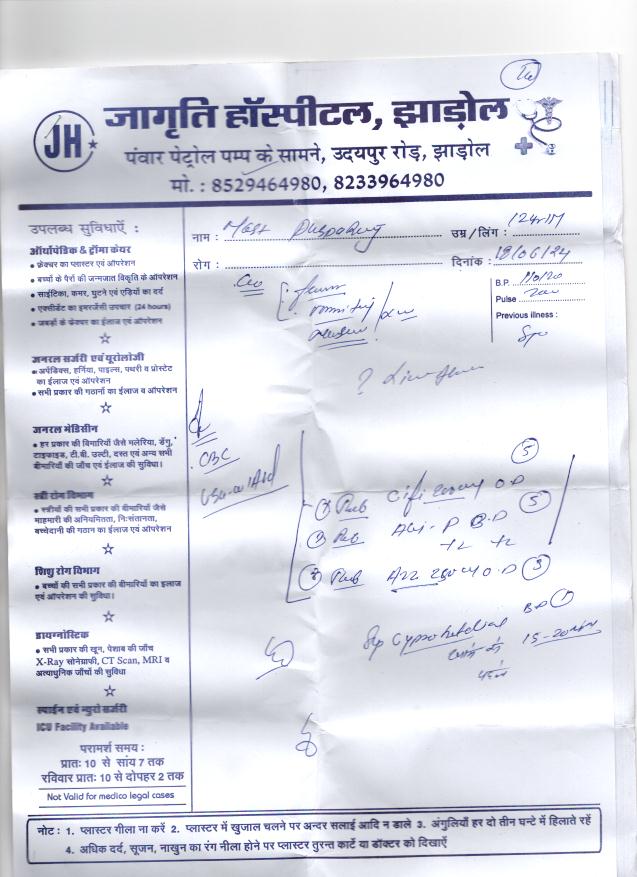 JH
जागृति हॉस्पीटल, झाड़ोल
पंवार पेट्रोल पम्प के सामने, उदयपुर रोड़, झाड़ोल
मो. : 8529464980, 8233964980
उपलब्ध सुविधाऐं :
ऑर्थोपेडिक & ट्रॉमा केयर
• फ्रेक्चर का प्लास्टर एवं ऑपरेशन
• बच्चों के पैरों की जन्मजात विकृति के ऑपरेशन
• साईटिका, कमर, घुटने एवं एडियों का दर्द
• एक्सीडेंट का इमरजेंसी उपचार (24 hours)
• जबड़ों के फ्रेक्चर का ईलाज एवं ऑपरेशन
जनरल सर्जरी एवं यूरोलोजी
• अपेंडिक्स, हर्निया, पाइल्स, पथरी व प्रोस्टेट
का ईलाज एवं ऑपरेशन
• सभी प्रकार की गठानों का ईलाज व ऑपरेशन
जनरल मेडिसीन
• हर प्रकार की बिमारियाँ जैसे मलेरिया, डेंगु,
टाइफाइड, टी.बी. उल्टी, दस्त एवं अन्य सभी
बीमारियों की जाँच एवं ईलाज की सुविधा।
स्त्री रोग विभाग
• स्त्रीयों की सभी प्रकार की बीमारियाँ जैसे
माहमारी की अनियमितता, नि:संतानता,
बच्चेदानी की गठान का ईलाज एवं ऑपरेशन
शिशु रोग विभाग
• बच्चों की सभी प्रकार की बीमारियों का इलाज
एवं ऑपरेशन की सुविधा।
डायग्नोस्टिक
• सभी प्रकार की खून, पेशाब की जाँच
X-Ray सोनोग्राफी, CT Scan, MRI व
अत्याधुनिक जाँचों की सुविधा
स्पाईन एवं न्युरो सर्जरी
ICU Facility Available
परामर्श समय :
प्रातः 10 से सांय 7 तक
रविवार प्रातः 10 से दोपहर 2 तक
Not Valid for medico legal cases
नाम :
उम्र / लिंग : 12yr/M
रोग :
दिनांक : 18/06/24
B.P. 110/70
Pulse
Previous illness :
vomiting
CBC
1 Tab Cifi 200mg O.D 5
2 Tab B.D 5
3 Tab Azz 250mg O.D 3
B.D 1
Syp
15-20
नोट : 1. प्लास्टर गीला ना करें 2. प्लास्टर में खुजाल चलने पर अन्दर सलाई आदि न डाले 3. अंगुलियाँ हर दो तीन घन्टे में हिलाते रहें
4. अधिक दर्द, सूजन, नाखुन का रंग नीला होने पर प्लास्टर तुरन्त काटें या डॉक्टर को दिखाऐं